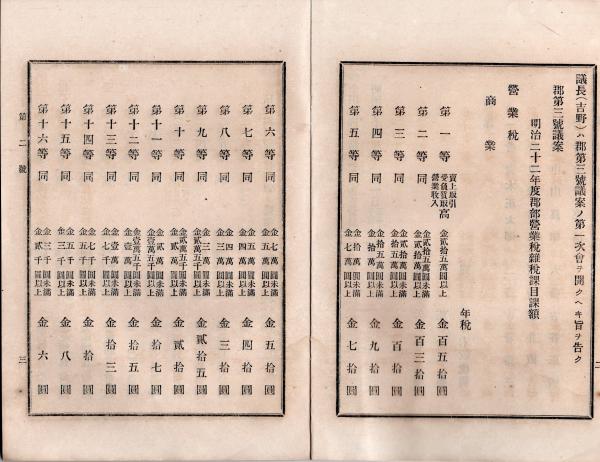 議長(吉野)ハ郡第三號議案ノ第一次會ヲ開クヘキ旨ヲ告ク
郡第三號議案
明治二十二年度郡部營業稅雜稅課目課額
營業稅
商業
年稅
第一等 賣上取引 受負買取高 營業收入 金貳拾五萬圓以上 金百五拾圓
第二等同 金貳拾五萬圓未滿 金貳拾萬圓以上 金百三拾圓
第三等同 金貳拾萬圓未滿 金拾五萬圓以上 金百拾圓
第四等同 金拾五萬圓未滿 金拾萬圓以上 金九拾圓
第五等同 金拾萬圓未滿 金七萬圓以上 金七拾圓
二
第六等同 金七萬圓未滿 金五萬圓以上 金五拾圓
第七等同 金五萬圓未滿 金四萬圓以上 金四拾圓
第八等同 金四萬圓未滿 金三萬圓以上 金三拾圓
第九等同 金三萬圓未滿 金貳萬五千圓以上 金貳拾五圓
第十等同 金貳萬五千圓未滿 金貳萬圓以上 金貳拾圓
第十一等同 金貳萬圓未滿 金壹萬五千圓以上 金拾七圓
第十二等同 金壹萬五千圓未滿 金壹萬圓以上 金拾五圓
第十三等同 金壹萬圓未滿 金七千圓以上 金拾三圓
第十四等同 金七千圓未滿 金五千圓以上 金拾圓
第十五等同 金五千圓未滿 金三千圓以上 金八圓
第十六等同 金三千圓未滿 金貳千圓以上 金六圓
第二號
三